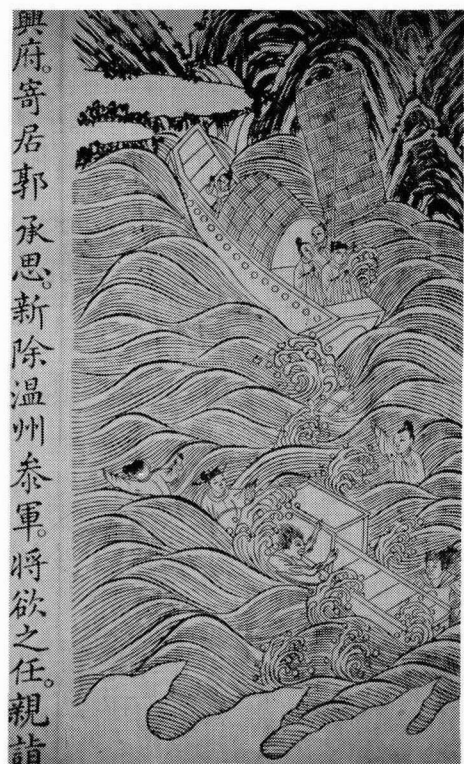 興府。寄居郭承思。新除温州叅軍。將欲之任。親詣